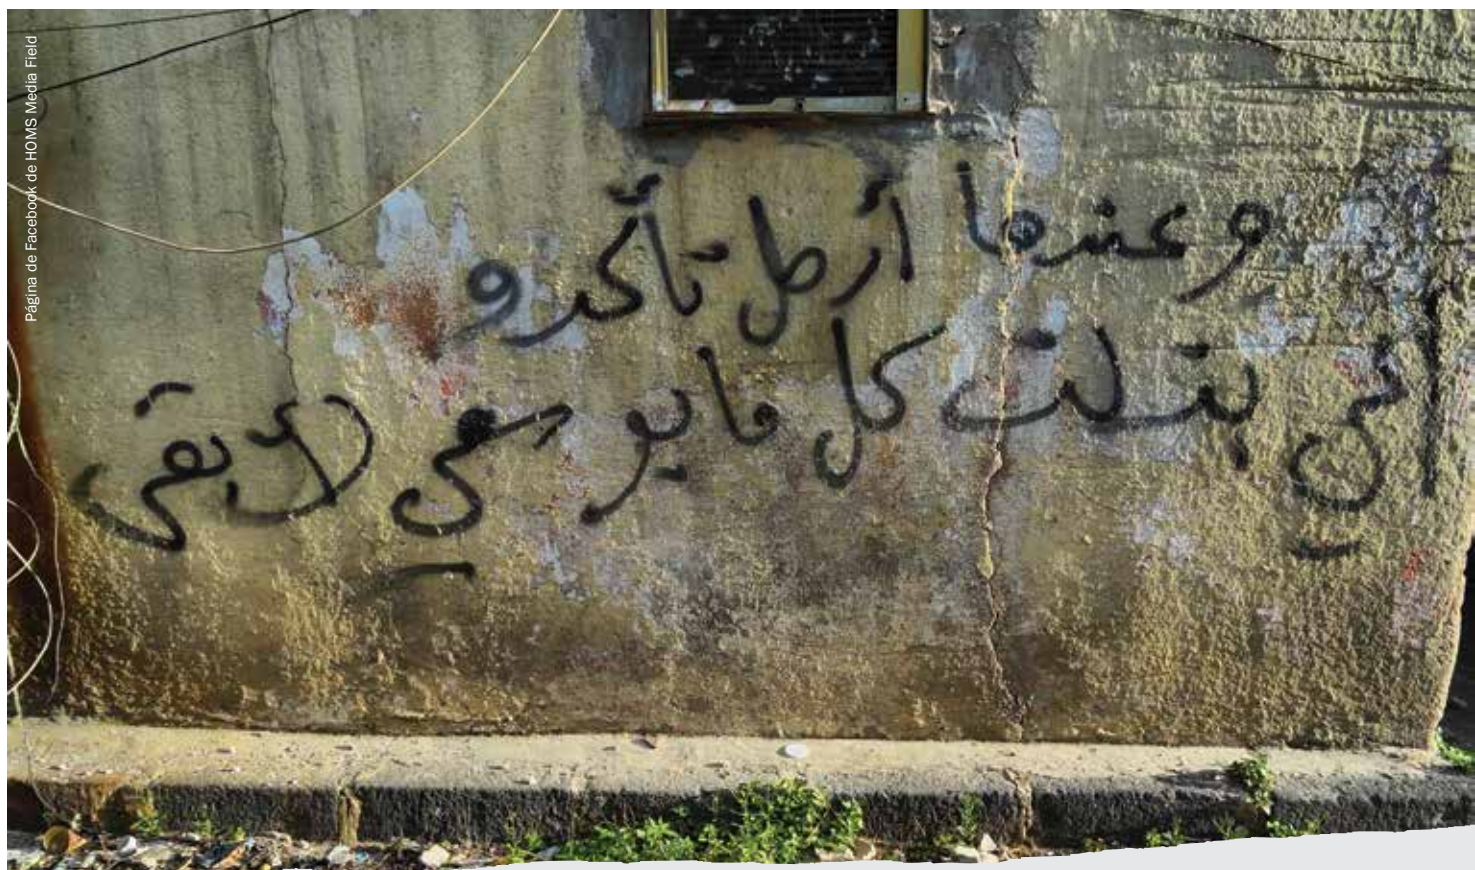 Página de Facebook de HOMS Media Field
وعندما أرحل تأكدو
اني بذلت كل ما بوسعي لأبقى